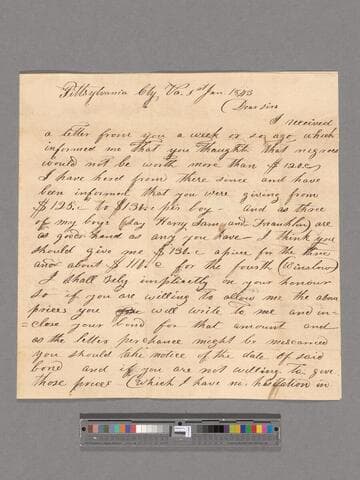 Pittsylvania Cty, Va. 1st Jan. 1843
Dear sirs
I received
a letter from you a week or so ago, which
informed me that you thought that negroes
would not be worth more than $
I have herd from there since and have
been informed that you were giving from
to per boy and as those
of my boys (Say Harry Sam and Franklin) are
as good hand as any you have I think you
should give me $ a piece for the three
and about $ for the fourth (Winslow)
I shall rely implicitly on your honour
So if you are willing to allow me the above
prices you will write to me and in-
=close your bond for that amount and
as the letter perchance meight be miscarried
you should take notice of the date of said
bond and if you are not willing to give
those prices (which I have no hesitation in